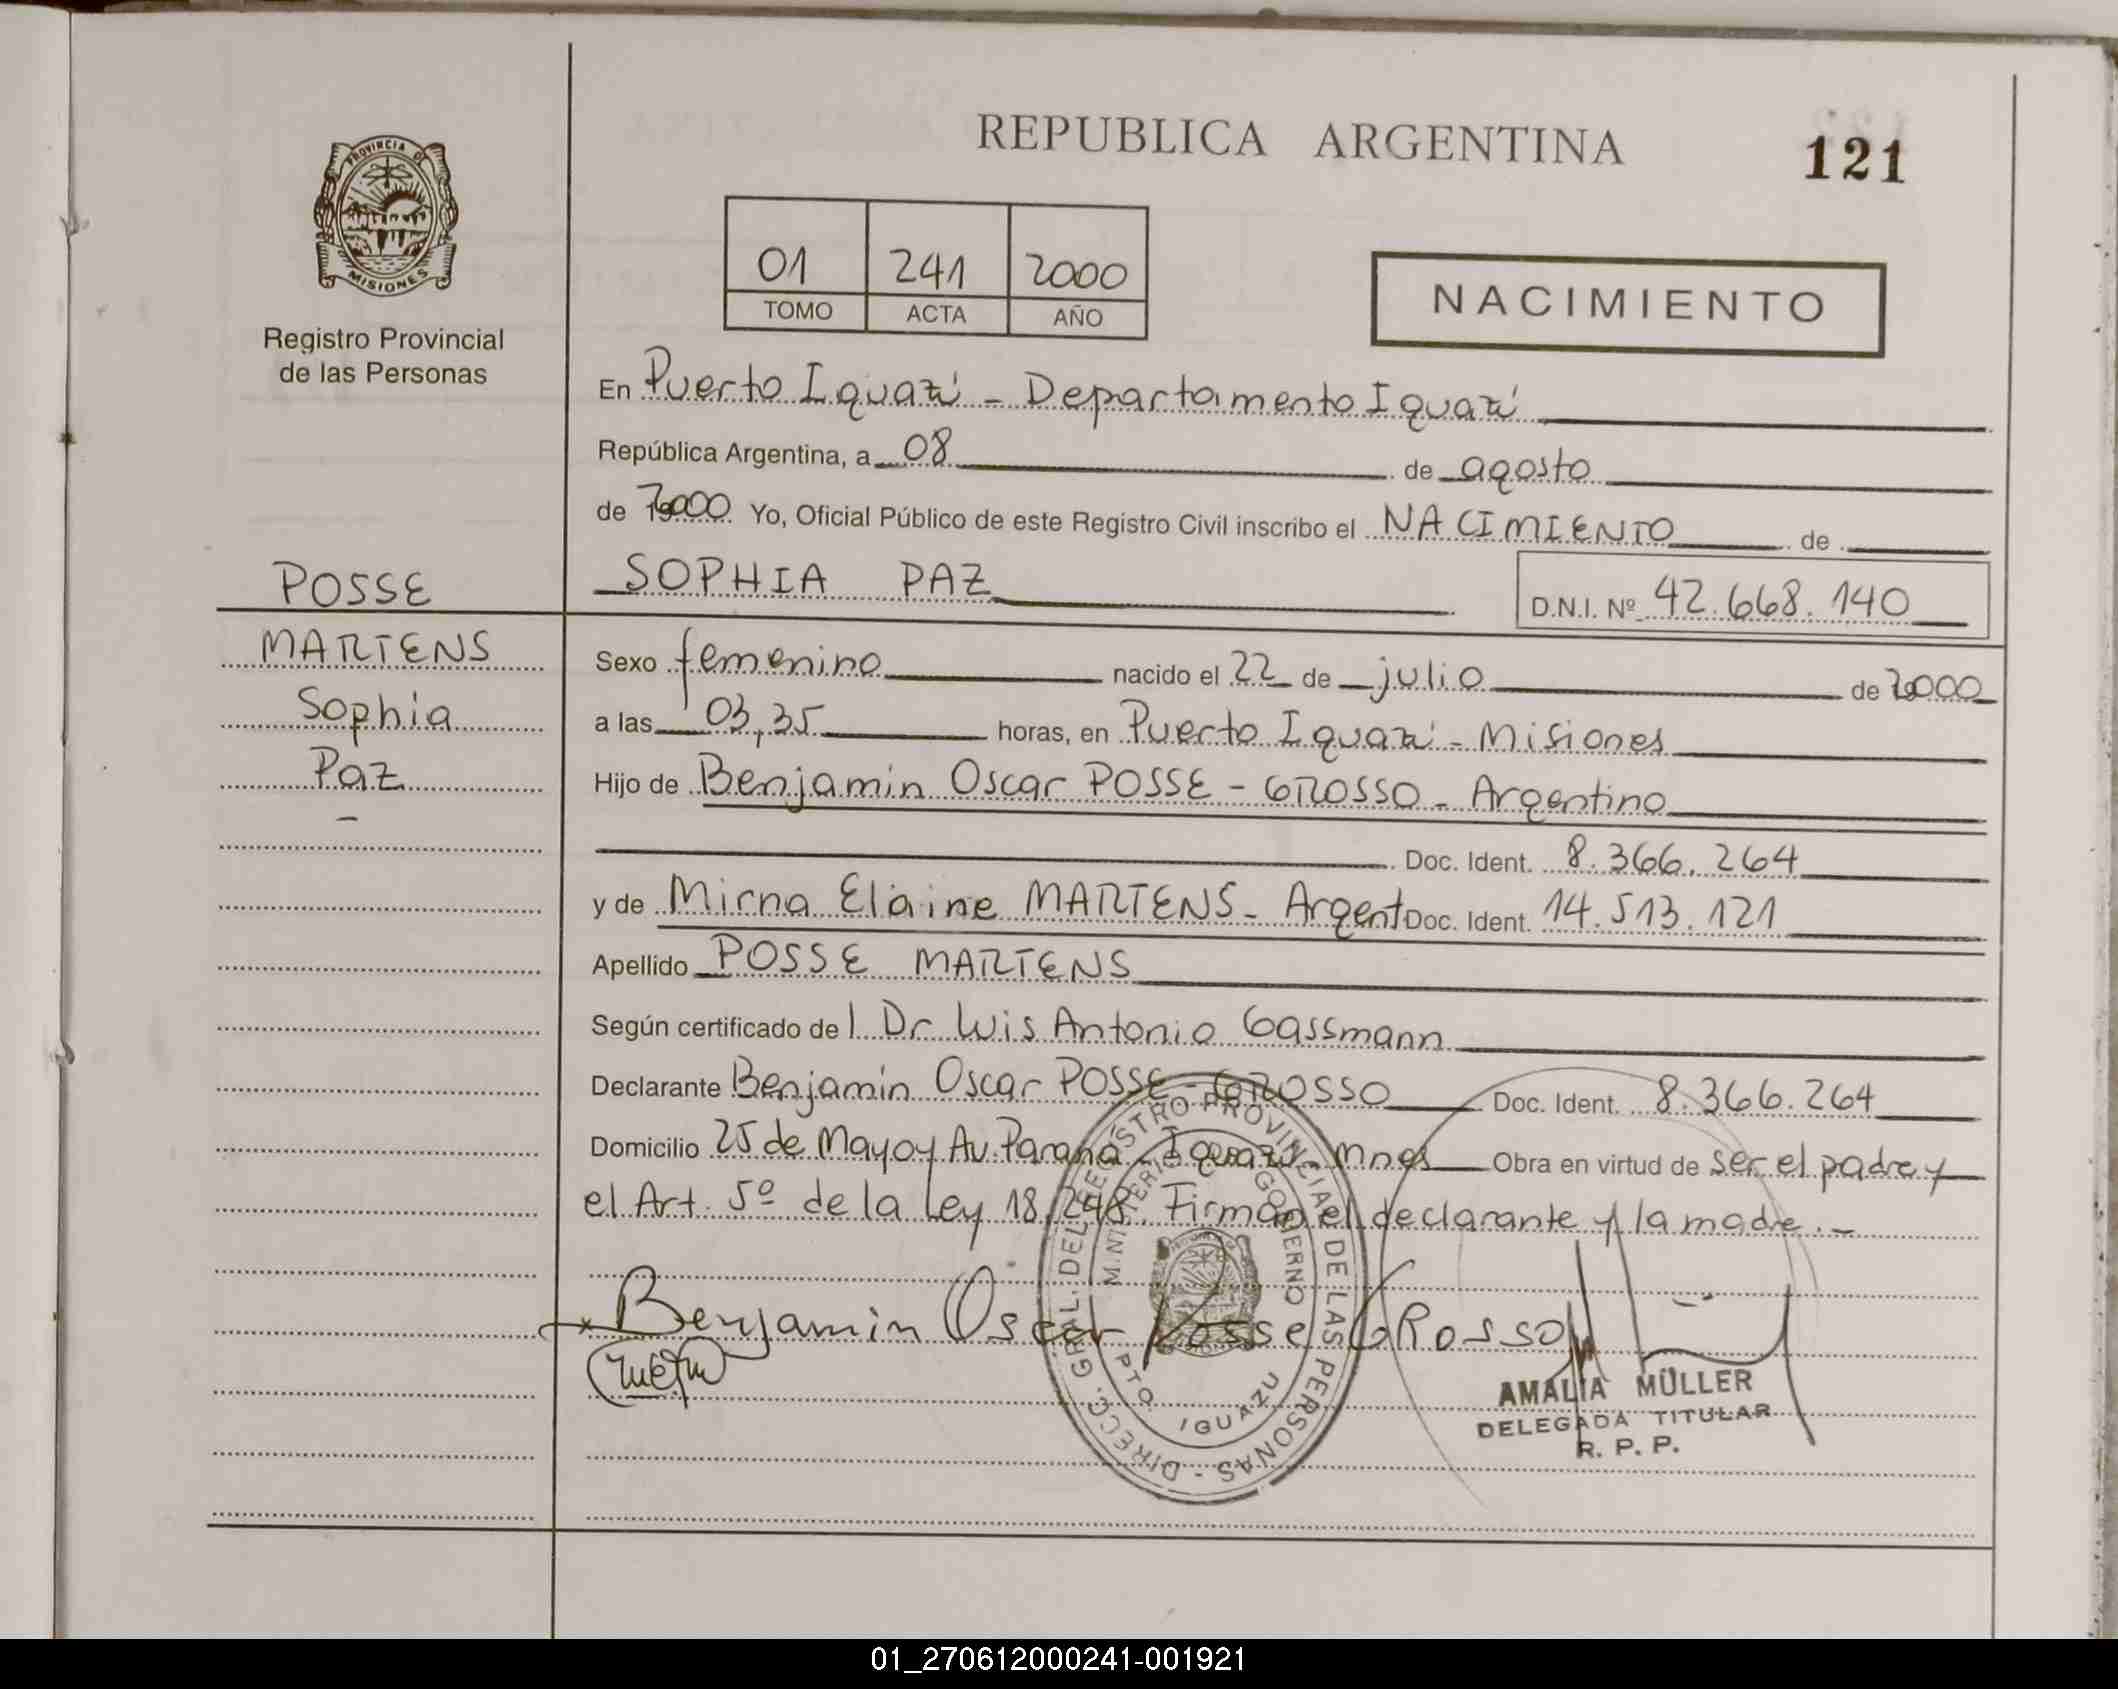 REPUBLICA ARGENTINA
121
PROVINCIA DE
MISIONES
Registro Provincial
de las Personas
01 241 2000
TOMO ACTA AÑO
NACIMIENTO
En Puerto Iguazú - Departamento Iguazú
República Argentina, a 08 de agosto
de 2000 Yo, Oficial Público de este Registro Civil inscribo el NACIMIENTO de
SOPHIA PAZ D.N.I. Nº 42.668.140
POSSE
MARTENS
Sophia
Paz
-
Sexo femenino nacido el 22 de julio de 2000
a las 03,35 horas, en Puerto Iguazú - Misiones
Hijo de Benjamín Oscar POSSE - GROSSO - Argentino
Doc. Ident. 8.366.264
y de Mirna Elaine MARTENS - Argent Doc. Ident. 14.513.121
Apellido POSSE MARTENS
Según certificado del Dr Luis Antonio Gassmann
Declarante Benjamín Oscar POSSE - GROSSO Doc. Ident. 8.366.264
Domicilio 25 de Mayo y Av. Paraná - Iguazú - Mnes Obra en virtud de ser el padre y
el Art. 5º de la Ley 18.248. Firman el declarante y la madre.-
Benjamin Oscar Posse GRosso
DIRECC. GRAL. DEL REGISTRO PROVINCIAL DE LAS PERSONAS -
MINISTERIO DE GOBIERNO
PTO. IGUAZU
AMALIA MÜLLER
DELEGADA TITULAR
R. P. P.
01_270612000241-001921